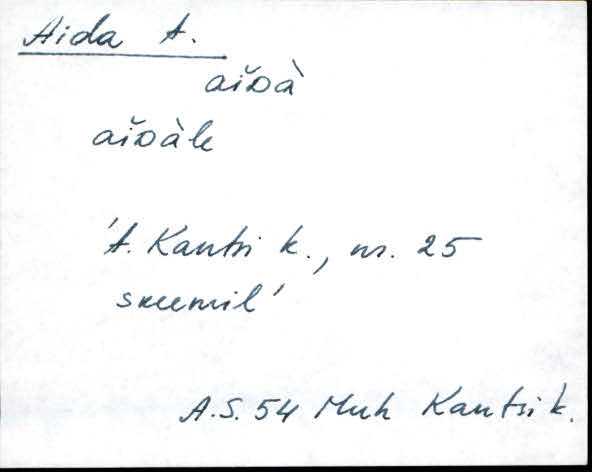 Aida t.
aĭᴅà
aĭᴅàlе
't. Kantsi k., nr. 25
skeemil'
A.S. 54 Muh Kantsi k.